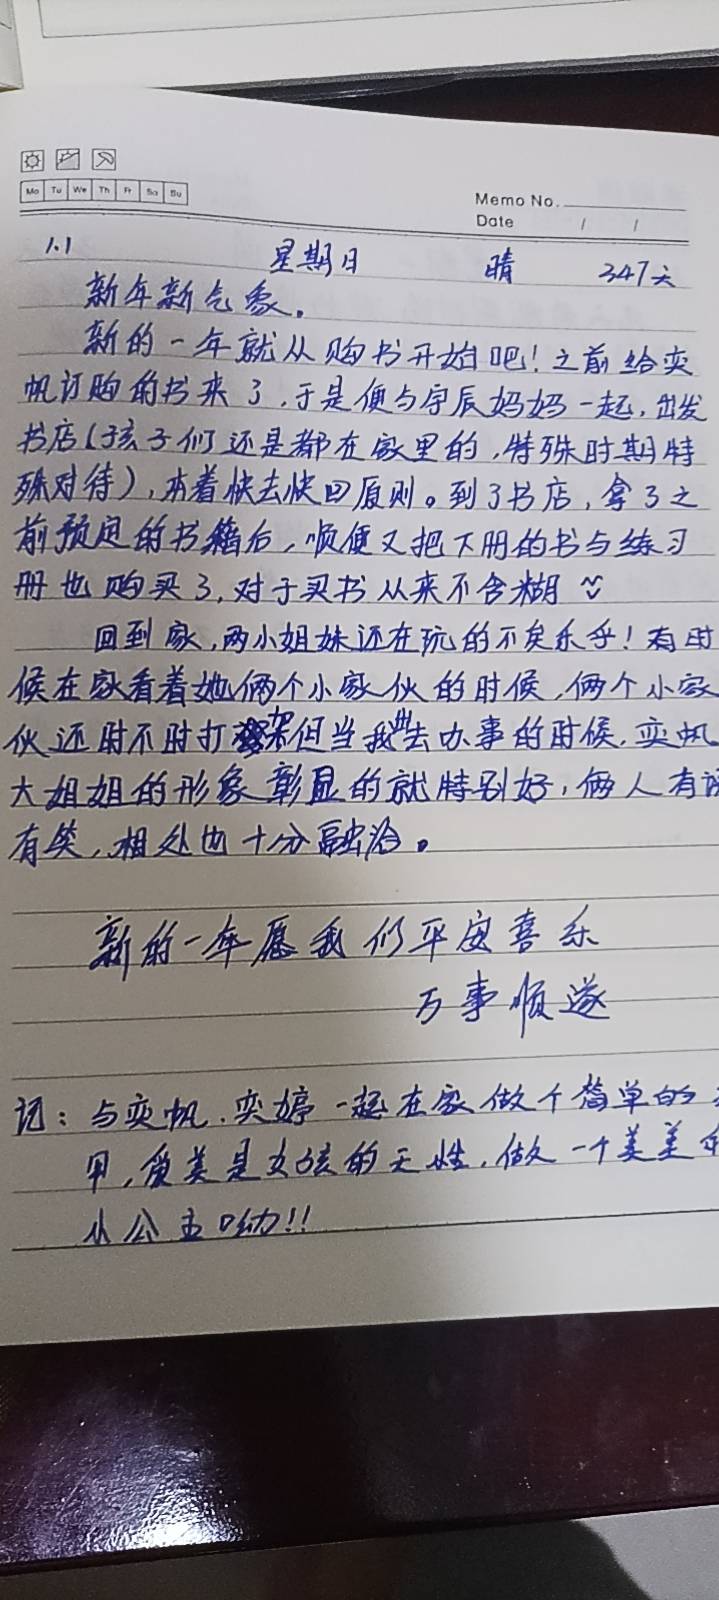 Mo Tu We Th Fr Sa Su
Memo No.
Date / /
1.1 星期日 晴 347天
新年新气象。
新的一年就从购书开始吧!之前给奕
帆订购的书来了,于是便与宇辰妈妈一起,出发
书店(孩子们还是都在家里的,特殊时期特
殊对待),本着快去快回原则。到了书店,拿了之
前预定的书籍后,顺便又把下册的书与练习
册也购买了,对于买书从来不含糊
回到家,两小姐妹还在玩的不亦乐乎!有时
候在家看着她俩个小家伙的时候,俩个小家
伙还时不时打架但当我出去办事的时候,奕帆
大姐姐的形象彰显的就特别好,俩人有说
有笑,相处也十分融洽。
新的一年愿我们平安喜乐
万事顺遂
记:与奕帆、奕婷一起在家做个简单的
甲,爱美是女孩的天性,做一个美美
小公主呦!!